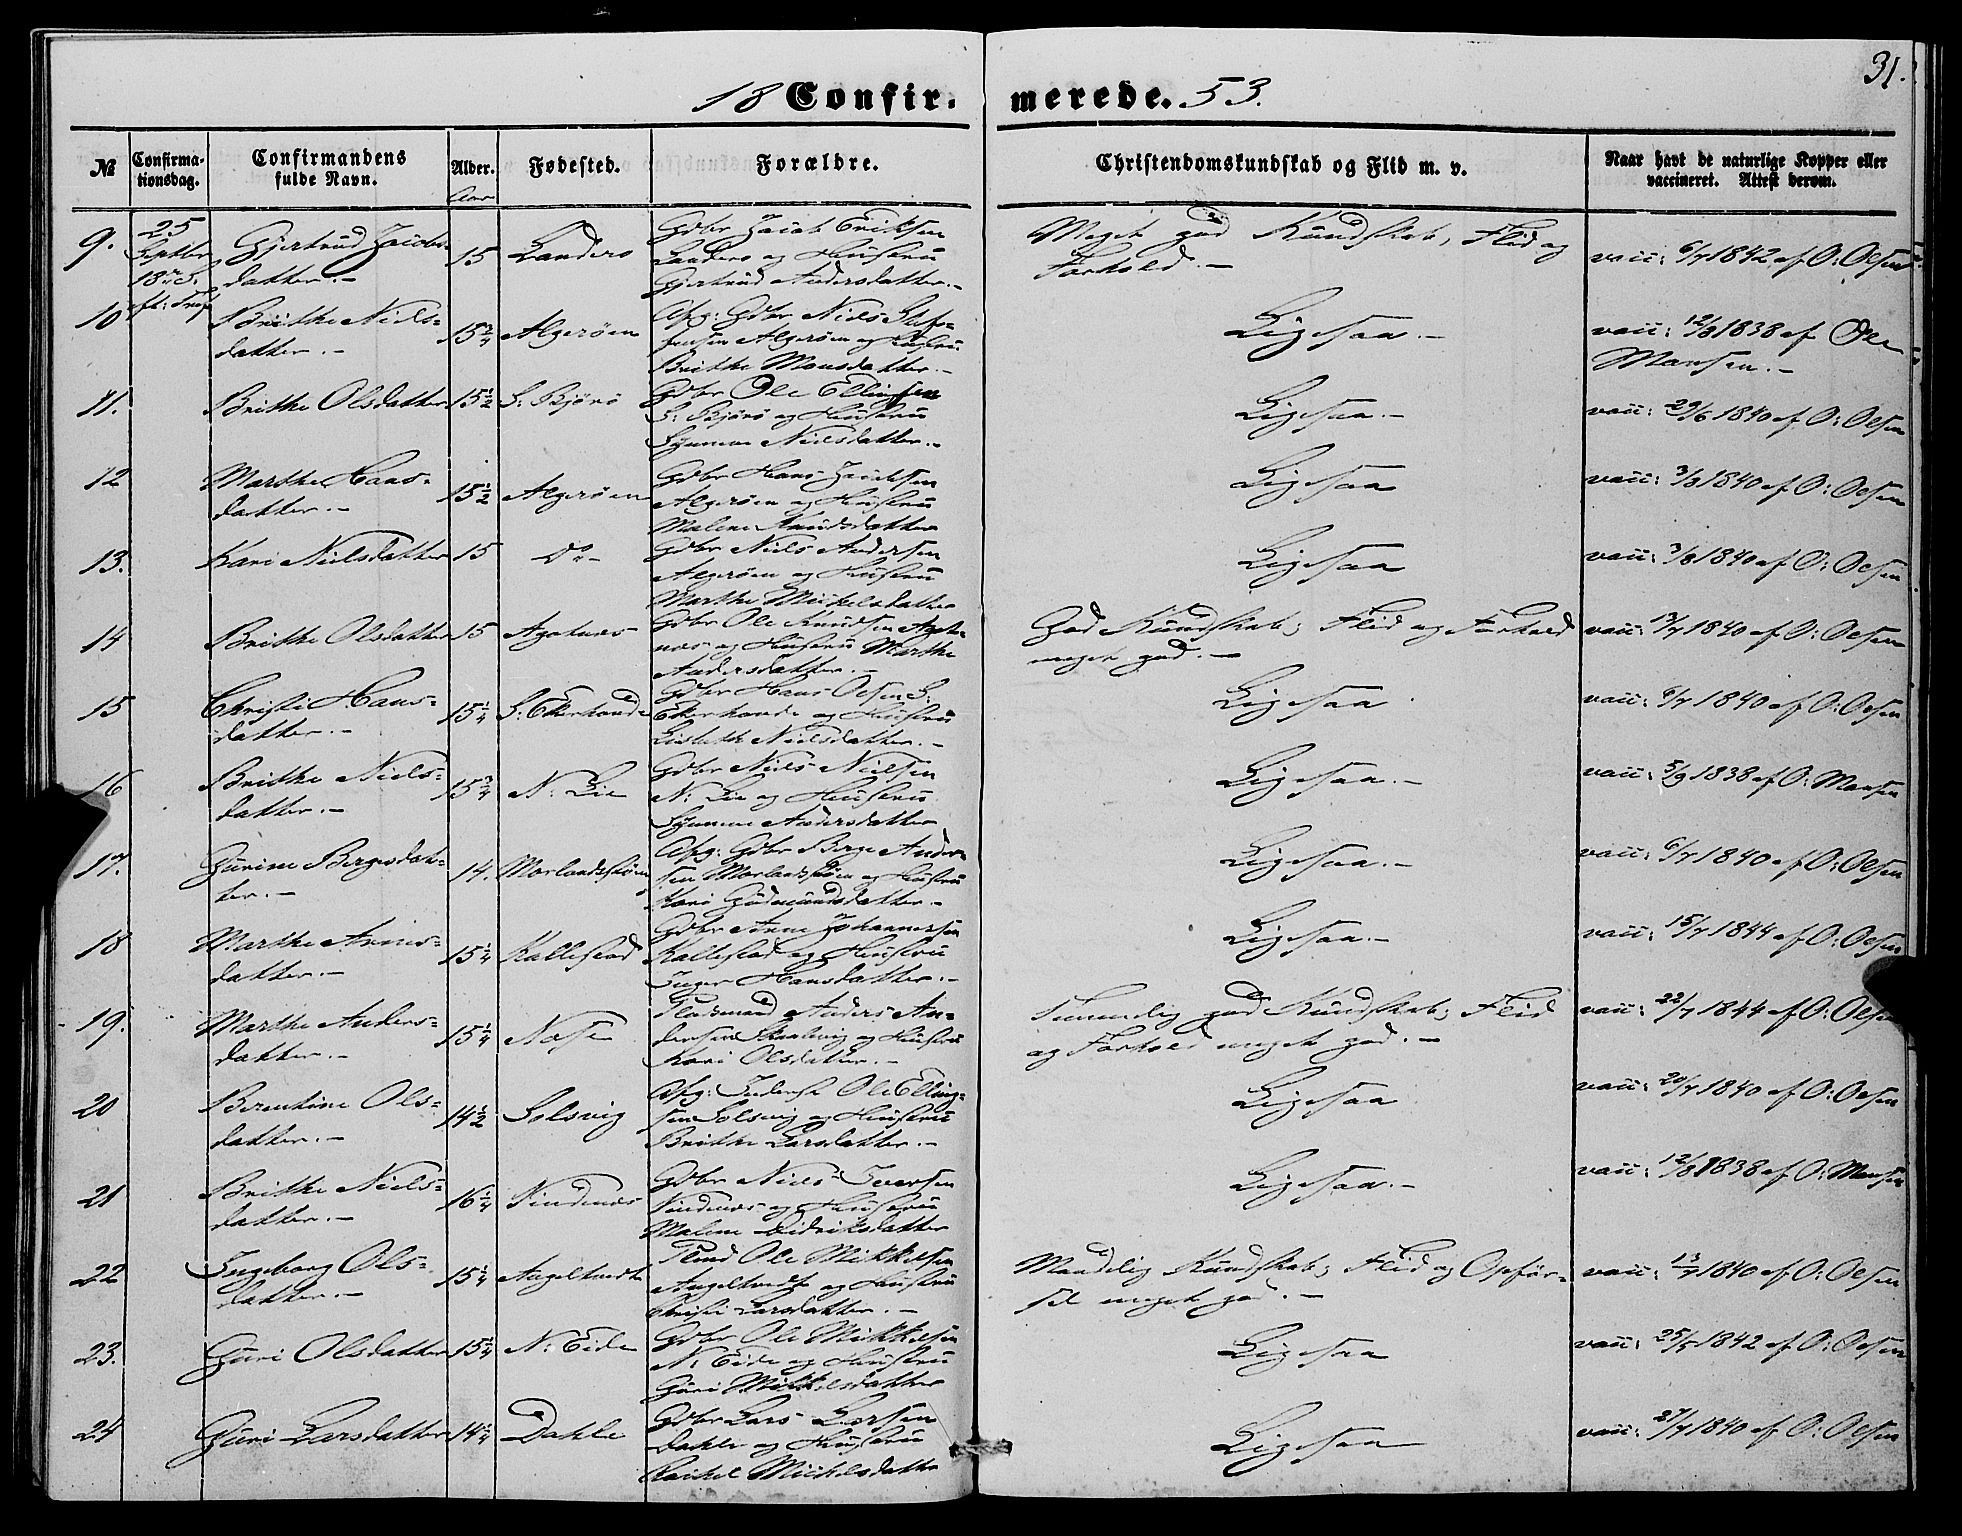 31.
18 Confir- merede. 53.
№ Confirma- tionsdag. Confirmandens fulde Navn. Alder. Fødested. Forældre. Christendomskundskab og Flid m. v. Naar havt de naturlige Kopper eller vaccineret. Attest derom.
Aar
9. 25 Septbr 1853. Gjertrud Jacobs- datter.- 15 Landero Gdbr Jacob Eriksen
Landero og Hustru
Gjertrud Andersdatter.-
Meget god Kundskab, Flid og
Forhold.-
vacc: 6/7 1842 af O: Olsen
10 Brithe Niels-
datter.- 15 3/4 Algerøen Afg: Gdbr Niels
Algerøen og Hustru
Brithe Monsdatter.-
Ligesaa.- vacc: 12/8 1838 af Ole
Monsen.-
11. Brithe Olsdatter 15 1/2 S: Bjørø Gdbr Ole Ellingsen
S: Bjørø og Hustru
Synneve Nielsdatter.-
Ligesaa.- vacc: 29/6 1840 af O: Olsen
12 Marthe Hans-
datter.- 15 1/2 Algerøen Gdbr Hans Jacobsen
Algerøen og Hustru
Malene Knudsdatter
Ligesaa vacc: 3/8 1840 af O: Olsen
13. Kari Nielsdatter 15 Do- Gdbr Niels Andersen
Algerøen og Hustru
Marthe Mickelsdatter
Ligesaa vacc: 3/8 1840 af O: Olsen
14 Brithe Olsdatter 15 Agotnes Gdbr Ole Knudsen Agot-
nes og Hustru Marthe
Andersdatter.-
God Kundskab; Flid og Forhold
meget god.-
vacc: 13/7 1840 af O: Olsen
15 Christi Hans-
datter.- 15 1/4 S: Ekerhovde Gdbr Hans Olsen S:
Ekerhovde og Hustru
Lisbeth Nielsdatter.-
Ligesaa vacc: 6/7 1840 af O: Olsen
16 Brithe Niels-
datter.- 15 3/4 N: Lie Gdbr Niels Nielsen
N: Lie og Hustru
Synneve Andersdatter
Ligesaa.- vacc: 5/9 1838 af O: Monsen
17. Gurine Bergesdat-
ter.- 14. Morlandsstøen Afg: Gdbr Berge Ander-
sen Morlandsstøen og Hustru
Kari Gudmundsdatter.-
Ligesaa.- vacc: 6/7 1840 af O: Olsen
18 Marthe Arnes-
datter.- 15 1/4 Kallestad Gdbr Arne Johannessen
Kallestad og Hustru
Inger Hansdatter.-
Ligesaa.- vacc: 15/7 1844 af O: Olsen
19. Marthe Anders-
datter.- 15 1/4 Nose Pladsmand Anders An-
dersen Skaalevig og Hustru
Kari Olsdatter.-
Temmelig god Kundskab; Flid
og Forhold meget god.-
vacc: 22/7 1844 af O: Olsen
20 Berentine Ols-
datter.- 14 1/2 Solsvig Afg: Inderst Ole Elling-
sen Solsvig og Hustru
Brithe Larsdatter.-
Ligesaa vacc: 20/7 1840 af O: Olsen
21 Brithe Niels-
datter.- 16 1/4 Vindenes Gdbr Niels Iversen
Vindenes og Hustru
Malene Didriksdatter
Ligesaa.- vacc: 12/8 1838 af O: Monsen
22 Ingeborg Ols-
datter.- 15 1/4 Angeltvedt Plmd Ole Mikkelsen
Angeltvedt og Hustru
Christi Larsdatter.-
Maadelig Kundskab; Flid og Opfør-
sel meget god.-
vacc: 13/7 1840 af O: Olsen
23. Guri Olsdatter 15 1/4 N: Eide Gdbr Ole Mikkelsen
N: Eide og Hustru
Guri Mikkelsdatter
Ligesaa vacc: 25/5 1842 af O: Olsen
24 Guri Larsdatter 14 1/4 Dahle Gdbr Lars Larsen
Dahle og Hustru
Rachel Mickelsdatter
Ligesaa vacc: 27/7 1840 af O: Olsen